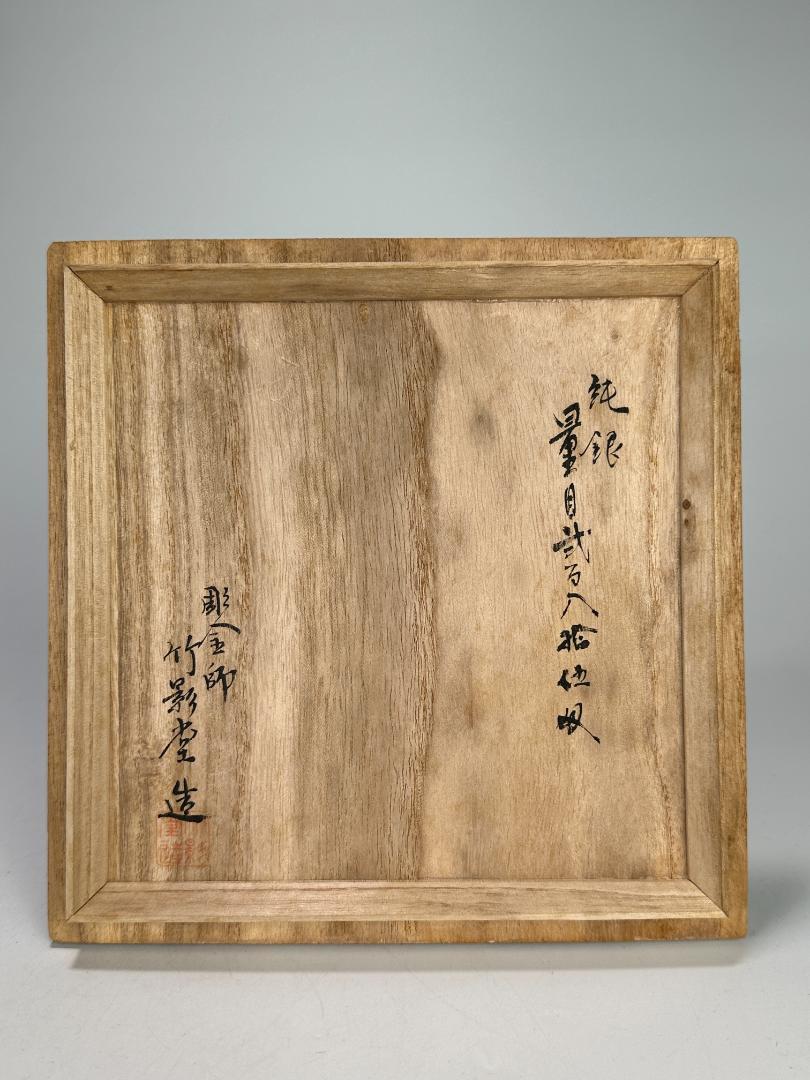 純銀
量目弐百八拾伍匁
彫金師
竹影堂造